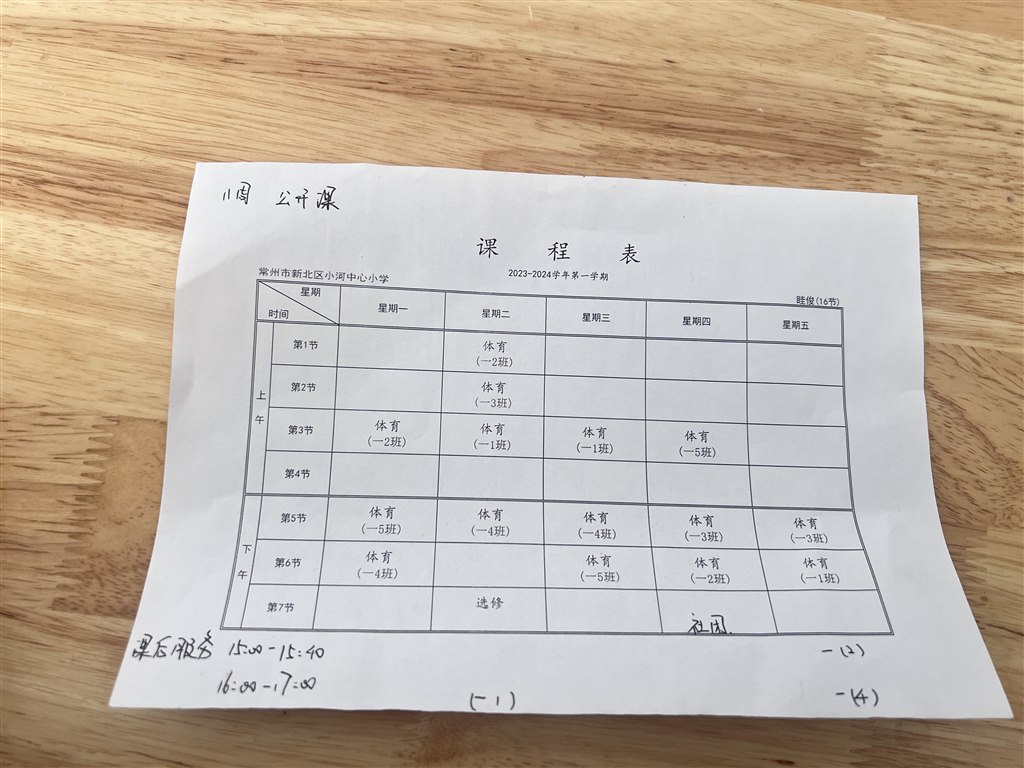 11周 公开课
课 程 表
常州市新北区小河中心小学 2023-2024学年第一学期 眭俊(16节)
星期 时间 星期一 星期二 星期三 星期四 星期五
上午
第1节 体育(一2班)
第2节 体育(一3班)
第3节 体育(一2班) 体育(一1班) 体育(一1班) 体育(一5班)
第4节
下午
第5节 体育(一5班) 体育(一4班) 体育(一4班) 体育(一3班) 体育(一3班)
第6节 体育(一4班) 体育(一5班) 体育(一2班) 体育(一1班)
第7节 选修 社团.
课后服务 15:00-15:40 一(2)
16:00-17:00 (一1) 一(4)